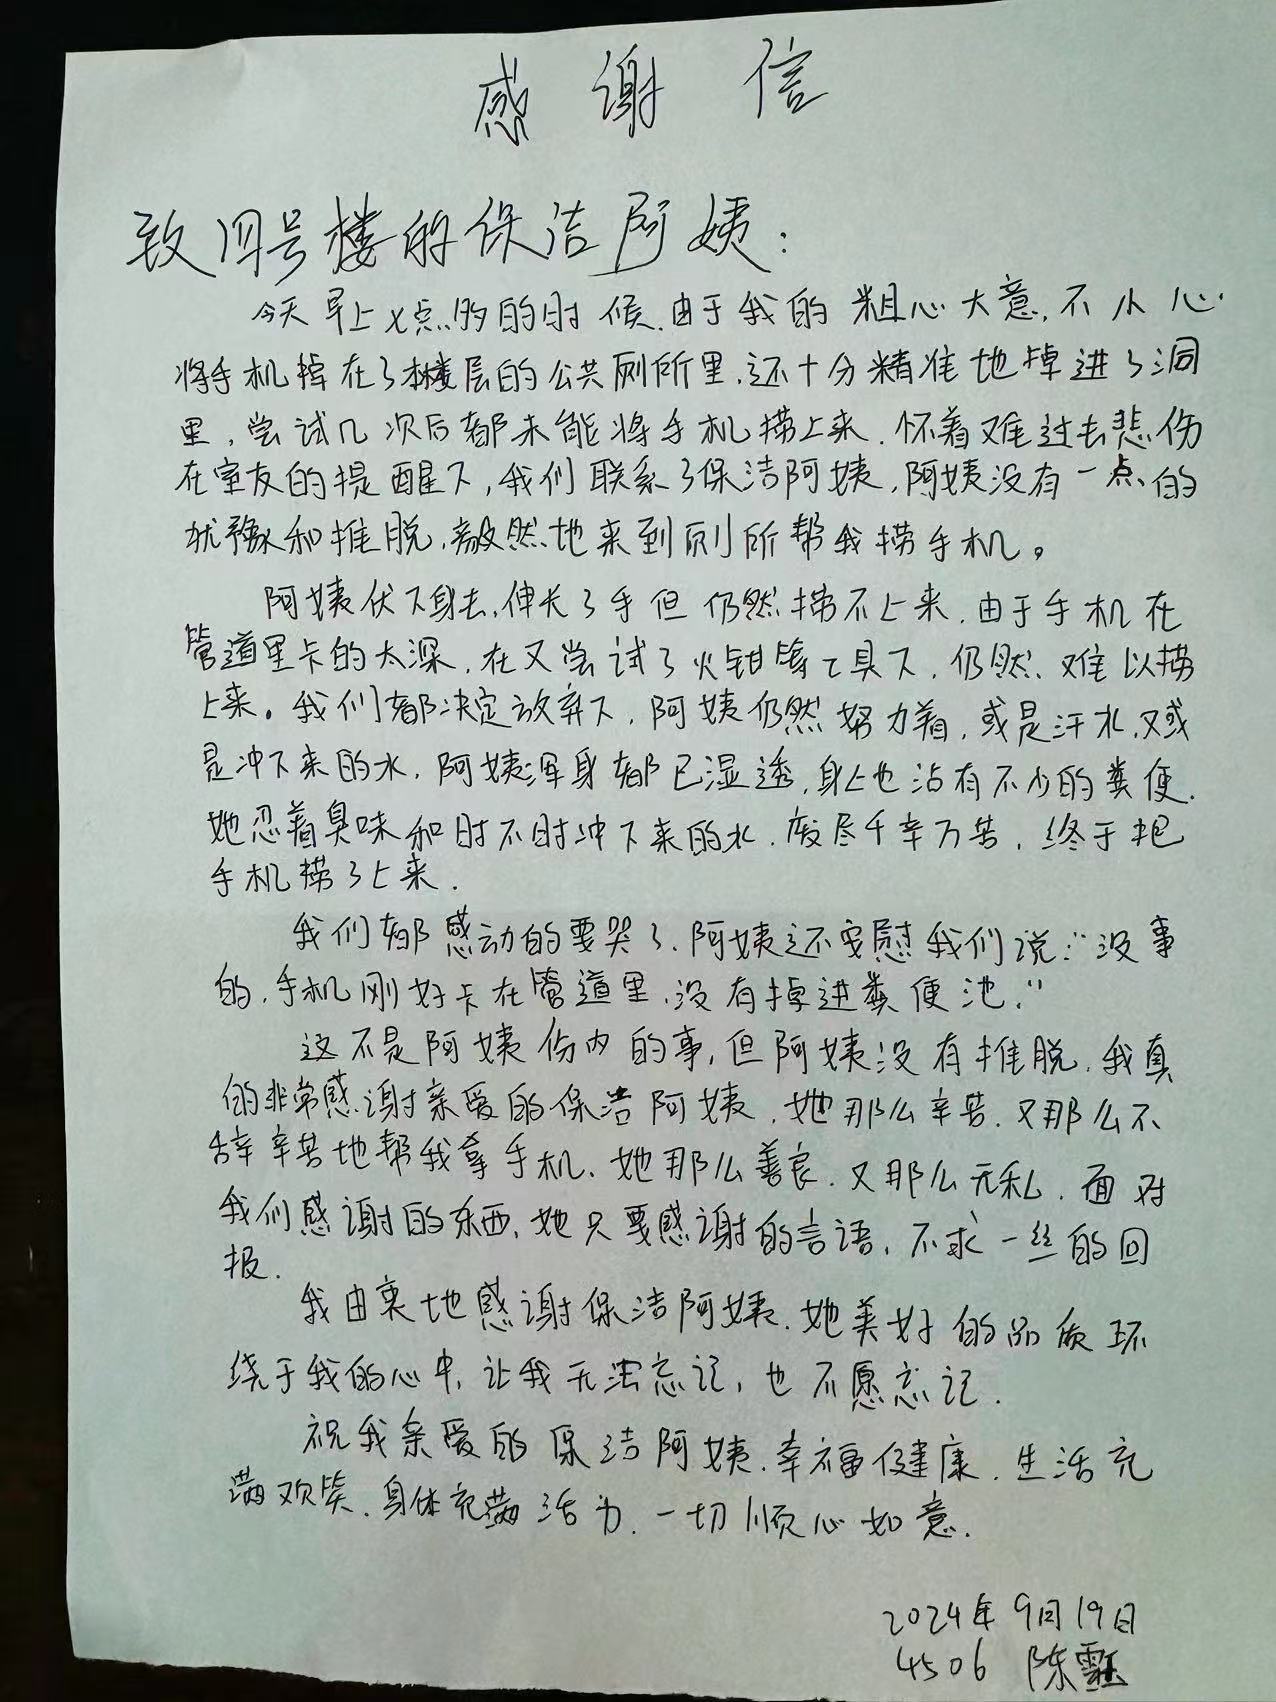 感谢信
致四号楼的保洁阿姨:
今天早上七点多的时候,由于我的粗心大意,不小心
将手机掉在了楼层的公共厕所里,还十分精准地掉进了洞
里,尝试几次后都未能将手机捞上来,怀着难过去悲伤
在室友的提醒下,我们联系了保洁阿姨,阿姨没有一点的
犹豫和推脱,毅然地来到厕所帮我捞手机。
阿姨伏下身去,伸长了手但仍然捞不上来,由于手机在
管道里卡的太深,在又尝试了火钳等工具下,仍然难以捞
上来。我们都决定放弃下,阿姨仍然努力着,或是汗水,又或
是冲下来的水,阿姨浑身都已湿透,身上也沾有不少的粪便.
她忍着臭味和时不时冲下来的水,废尽千辛万苦,终于把
手机捞了上来.
我们都感动的要哭了,阿姨还安慰我们说:“没事
的,手机刚好卡在管道里,没有掉进粪便池.”
这不是阿姨份内的事,但阿姨没有推脱,我真
的非常感谢亲爱的保洁阿姨,她那么辛苦,又那么不
辞辛苦地帮我拿手机,她那么善良,又那么无私,面对
我们感谢的东西,她只要感谢的言语,不求一丝的回
报.
我由衷地感谢保洁阿姨,她美好的品质环
绕于我的心中,让我无法忘记,也不愿忘记.
祝我亲爱的保洁阿姨,幸福健康,生活充
满欢笑,身体充满活力,一切顺心如意.
2024年9月19日
4506 陈